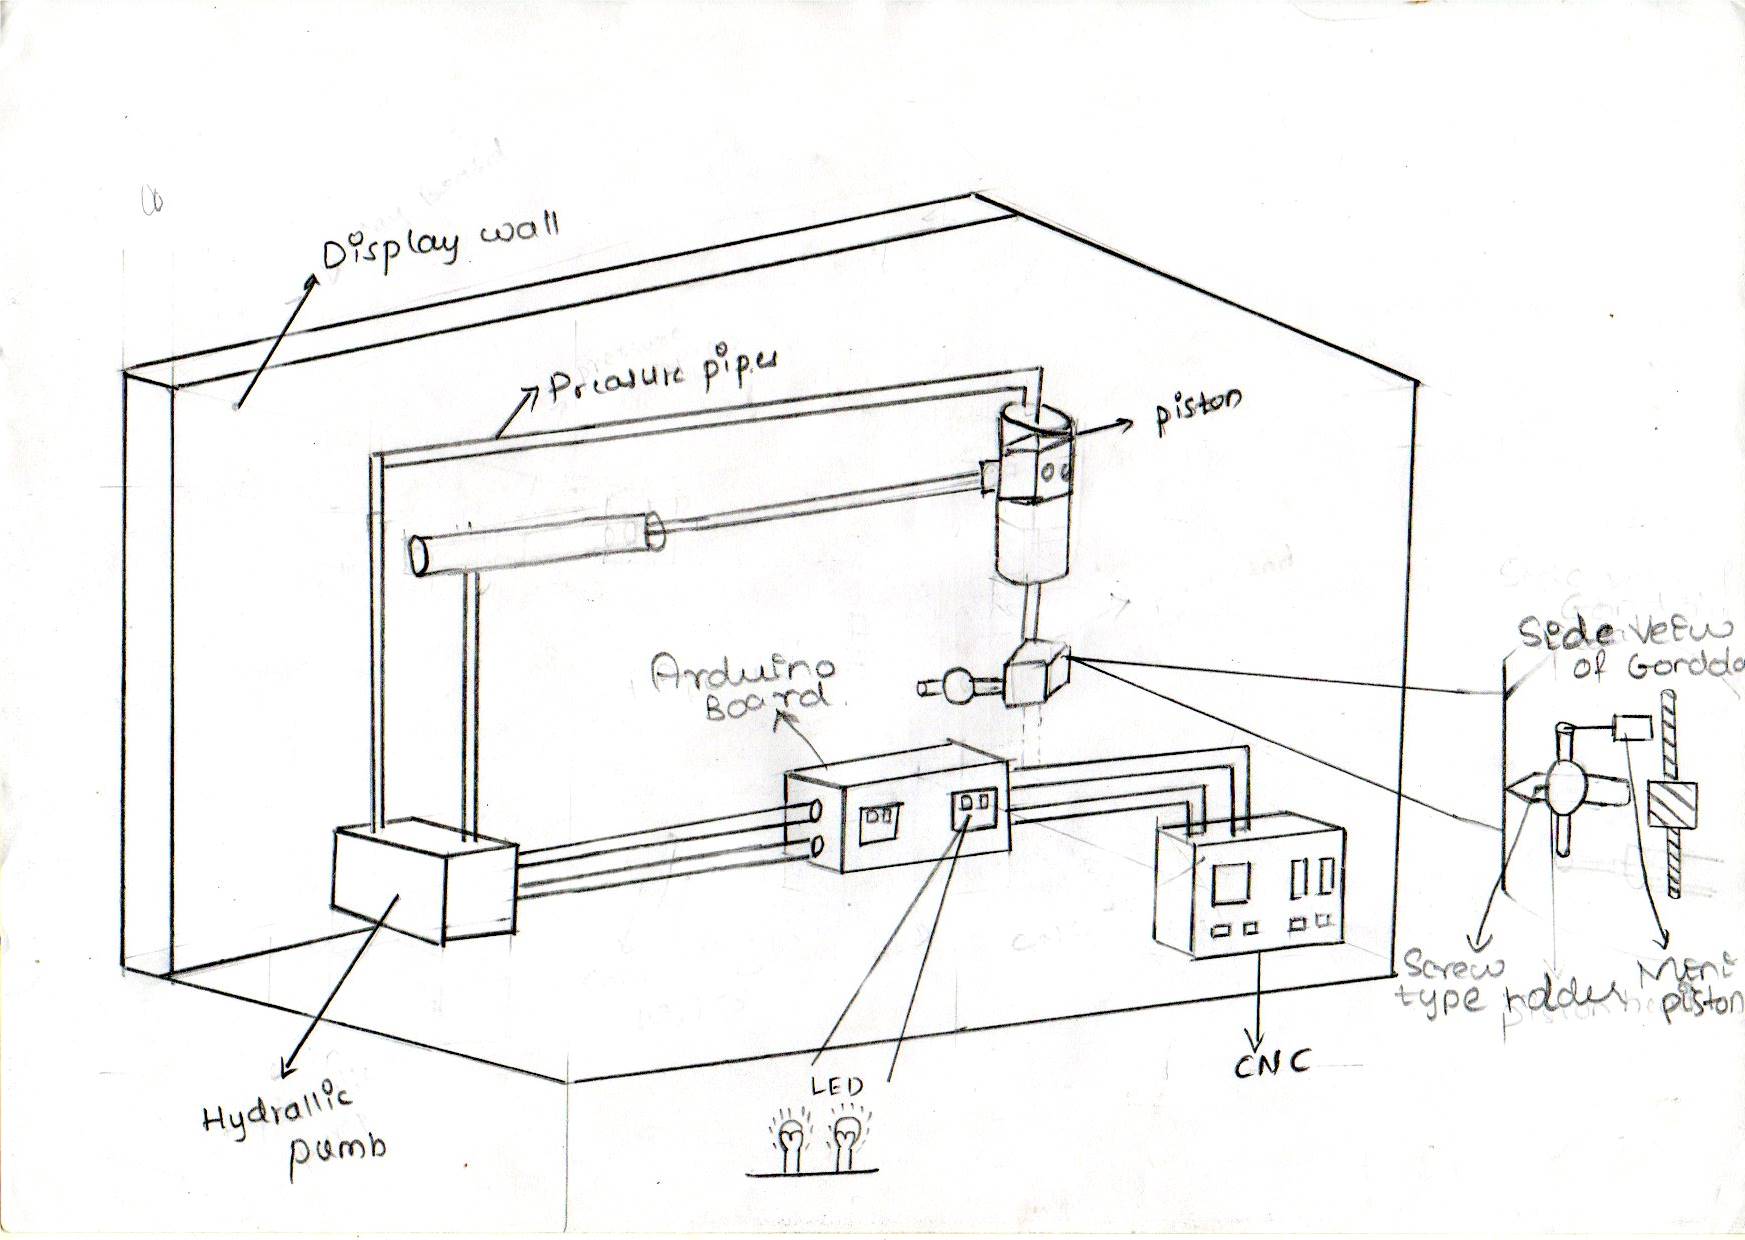 Display wall
Preasure pipes
piston
Arduino
Board.
Side veiw
of Gordda
Screw
type holder
Mini
piston
LED
CNC
Hydrallic
pumb